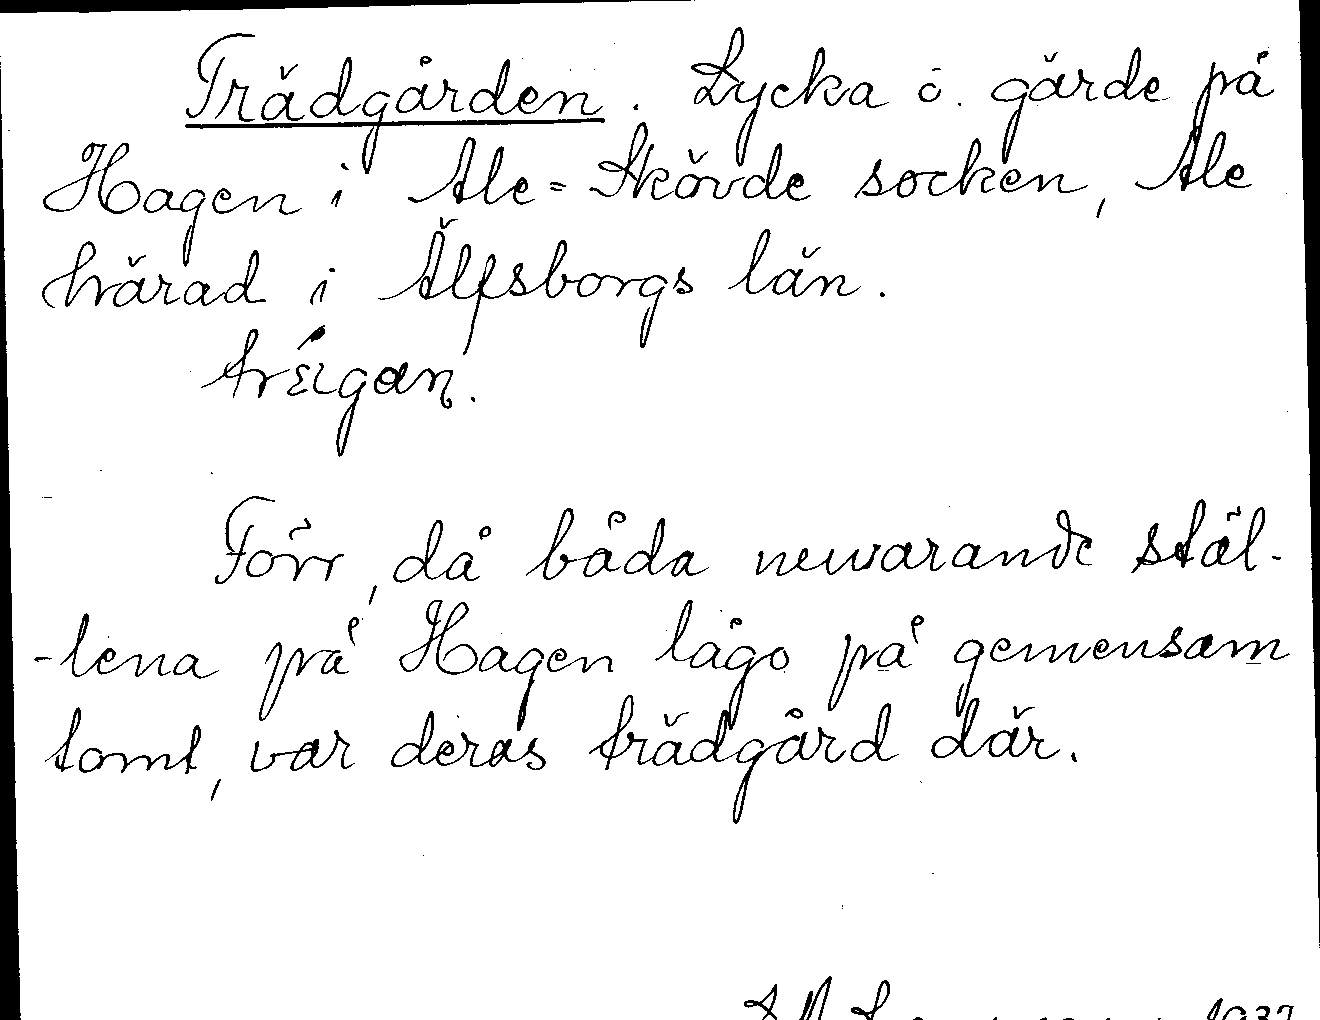 Trädgården. Lycka o. gärde på
Hagen i Ale-Skövde socken, Ale
härad i Älfsborgs län.
Förr, då båda nuvarande stäl-
-lena på Hagen lågo på gemensam
tomt, var deras trädgård där.
1932